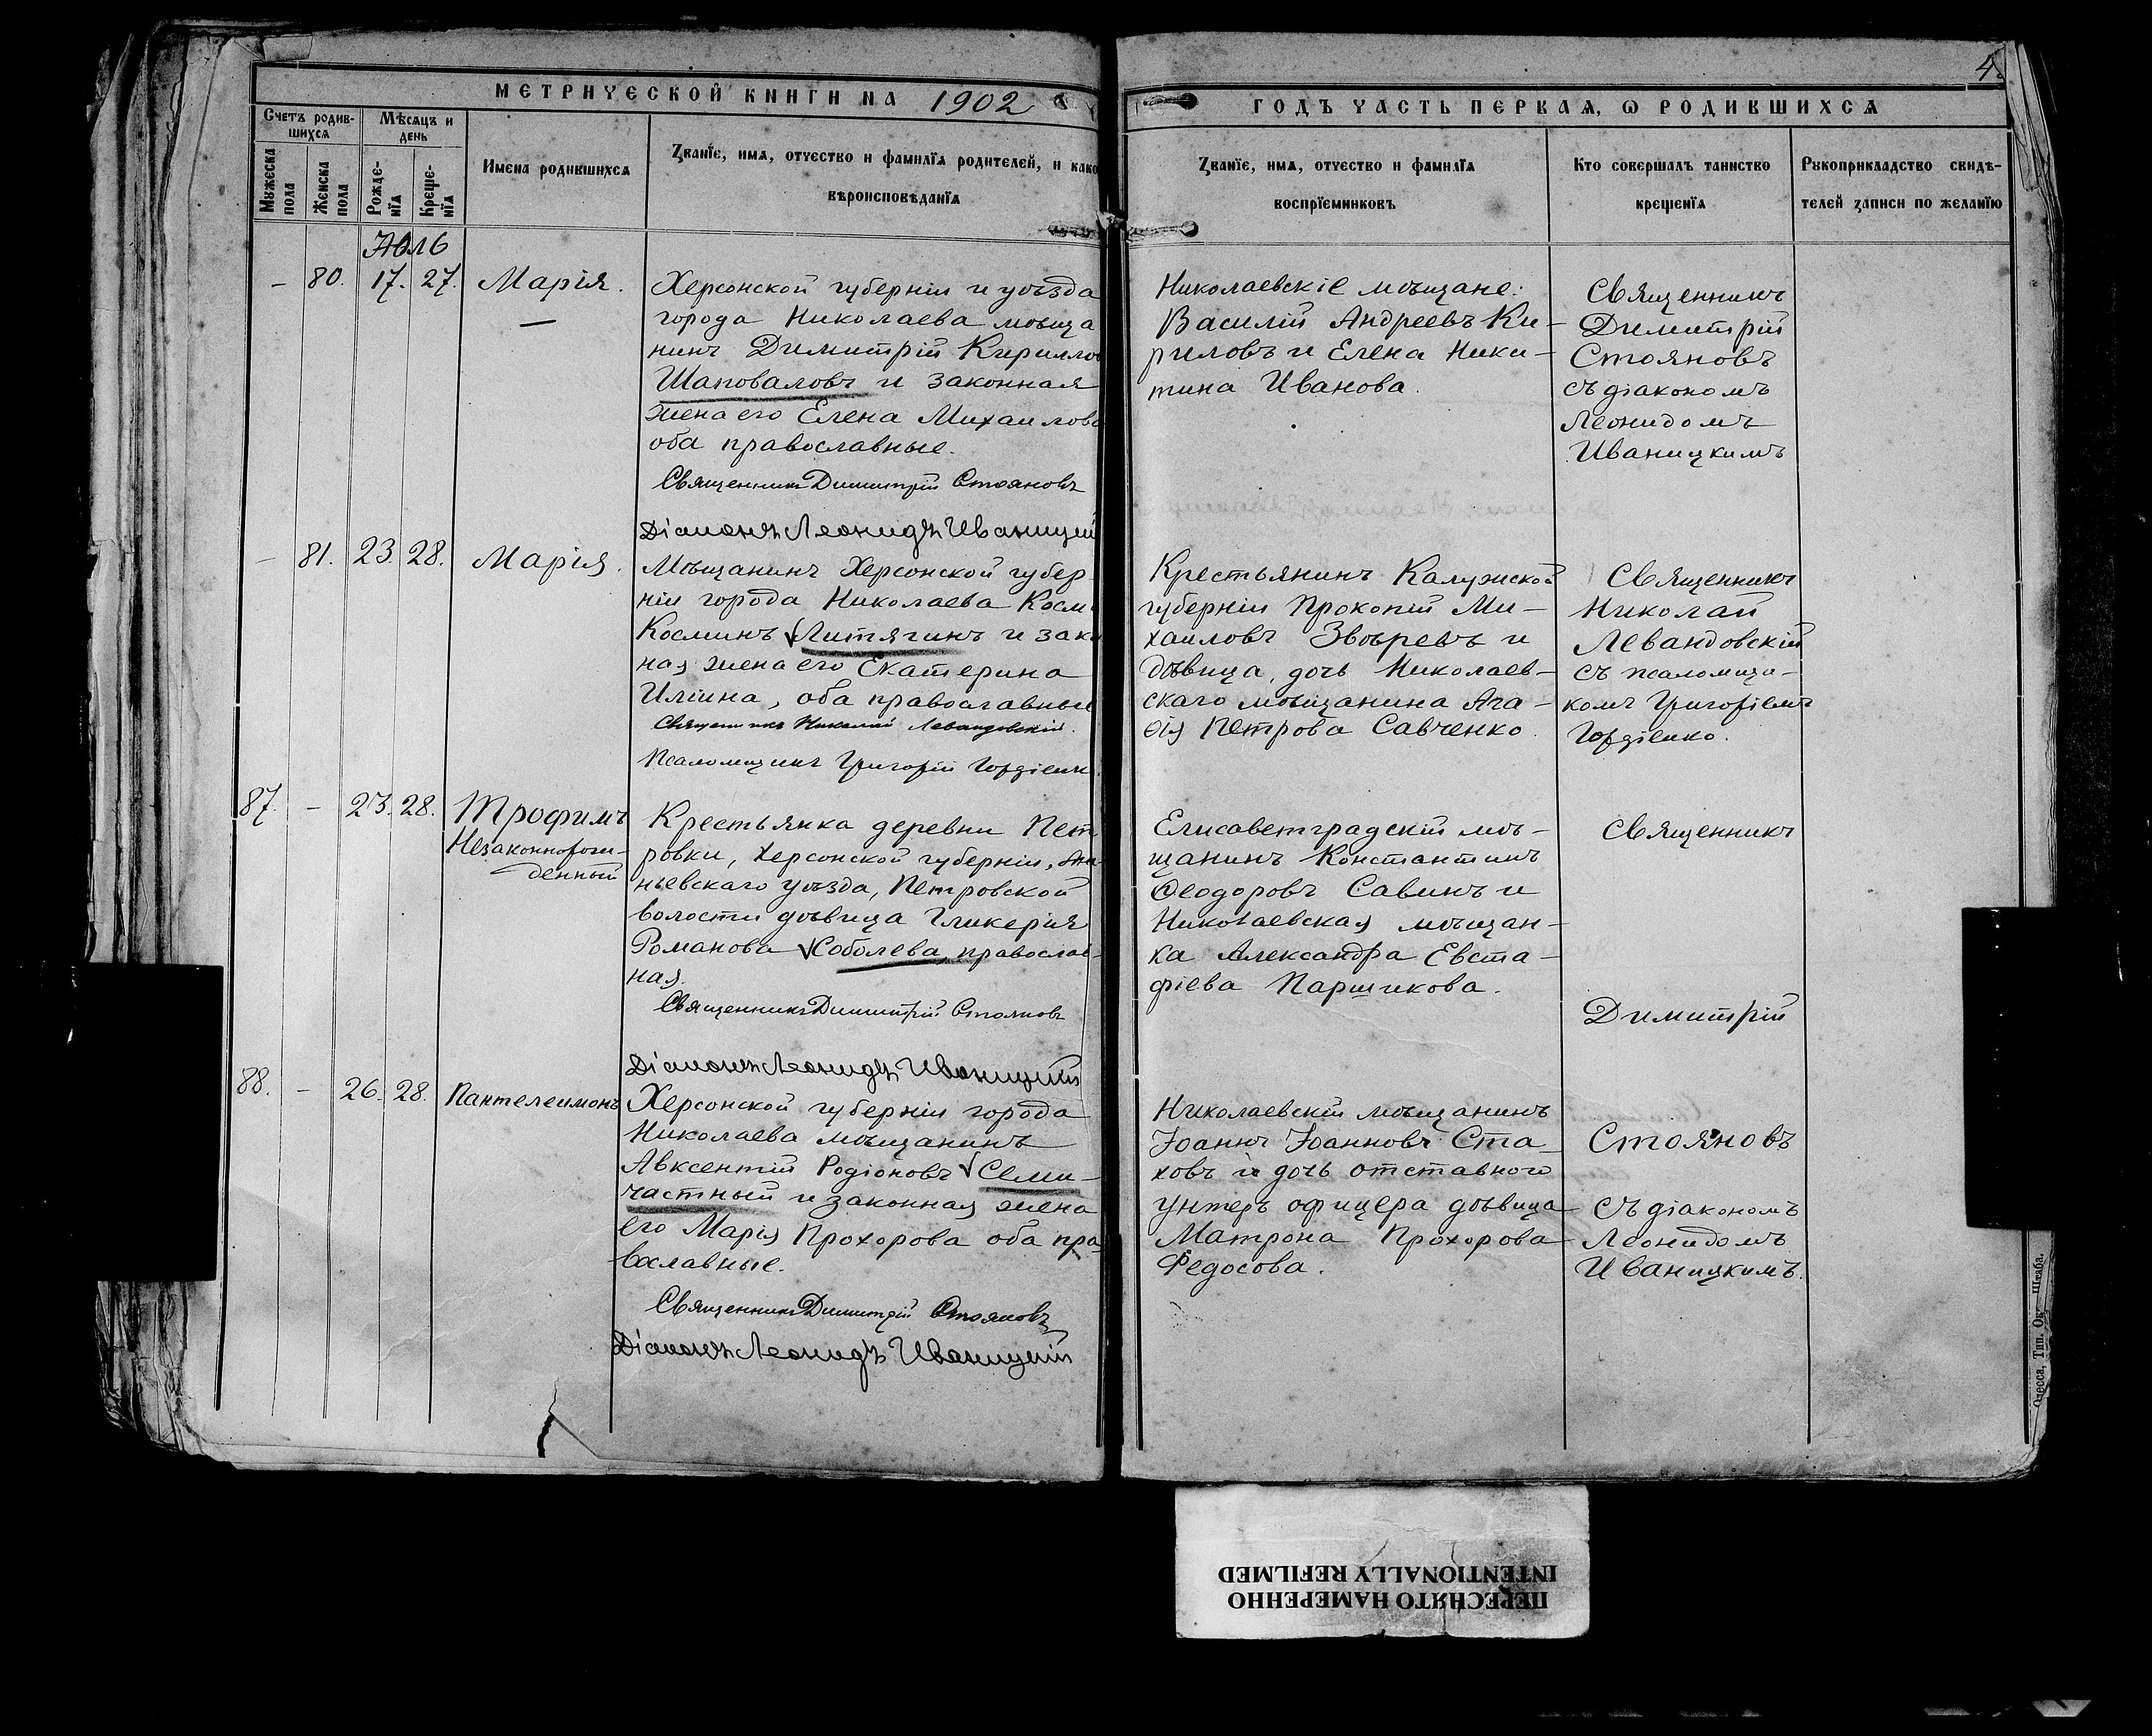 4
МЕТРИЧЕСКОЙ КНИГИ НА 1902
ГОДЪ ЧАСТЬ ПЕРВАЯ, Ѡ РОДИВШИХСЯ
Счетъ родив-
шихся
Мѣсяцъ и
день
Мужеска
пола
Женска
пола
Рожде-
нїя
Креще-
нїя
Имена родившихся
Званїе, имя, отчество и фамилїя родителей, и како
вѣроисповѣданїя
Званїе, имя, отчество и фамилїя
воспрїемниковъ
Кто совершалъ таинство
крещенїя
Рукоприкладство свидѣ-
телей записи по желанїю
Июль
– 80. 17. 27. Марія.
Херсонской губерніи и уѣзда
города Николаева мѣща
нинъ Димитрій Кириллов
Шаповаловъ и законная
жена его Елена Михаилова
оба православные.
Священникъ Димитрій Стояновъ
Діаконъ Леонидъ Иваницкій
Николаевскіе мѣщане:
Василій Андреевъ Ки-
риловъ и Елена Ники-
тина Иванова.
Священникъ
Димитрій
Стояновъ
съ діакономъ
Леонидомъ
Иваницкимъ
– 81. 23. 28. Марія.
Мѣщанинъ Херсонской губер-
ніи города Николаева Косм
Косминъ Литягинъ и зак
ная жена его Екатерина
Иліина, оба православные
Священникъ Николай Левандовскій.
Псаломщикъ Григорій Гордіенк
Крестьянинъ Калужской
губерніи Прокопій Ми-
хаиловъ Звѣревъ и
дѣвица, дочь Николаев-
скаго мѣщанина Ага-
ѳія Петрова Савченко.
Священникъ
Николай
Левандовскій
съ псаломщи-
комъ Григоріемъ
Гордіенко.
87. – 23. 28. Трофимъ
Незаконнорож-
денный
Крестьянка деревни Пет
ровки, Херсонской губерніи, Ана-
ньевскаго уѣзда, Петровской
волости дѣвица Гликерія
Романова Соболева, православ-
ная.
Священникъ Димитрій Стояновъ
Діаконъ Леонидъ Иваницкій
Елисаветградскій мѣ-
щанинъ Константинъ
Ѳеодоровъ Савинъ и
Николаевская мѣщан-
ка Александра Евста-
фіева Паршикова.
Священникъ
Димитрій
88. – 26. 28. Пантелеимонъ
Херсонской губерніи города
Николаева мѣщанинъ
Авксентій Родіоновъ Семи-
частный и законная жена
его Марія Прохорова оба пра-
вославные.
Священникъ Димитрій Стояновъ
Діаконъ Леонидъ Иваницкій
Николаевскій мѣщанинъ
Іоаннъ Іоанновъ Ста-
ховъ и дочь отставного
унтеръ офицера дѣвица
Матрона Прохорова
Федосова.
Стояновъ
съ діакономъ
Леонидомъ
Иваницкимъ.
Одесса, Тип. Ок. Штаба.
ПЕРЕСНЯТО НАМЕРЕННО
INTENTIONALLY REFILMED